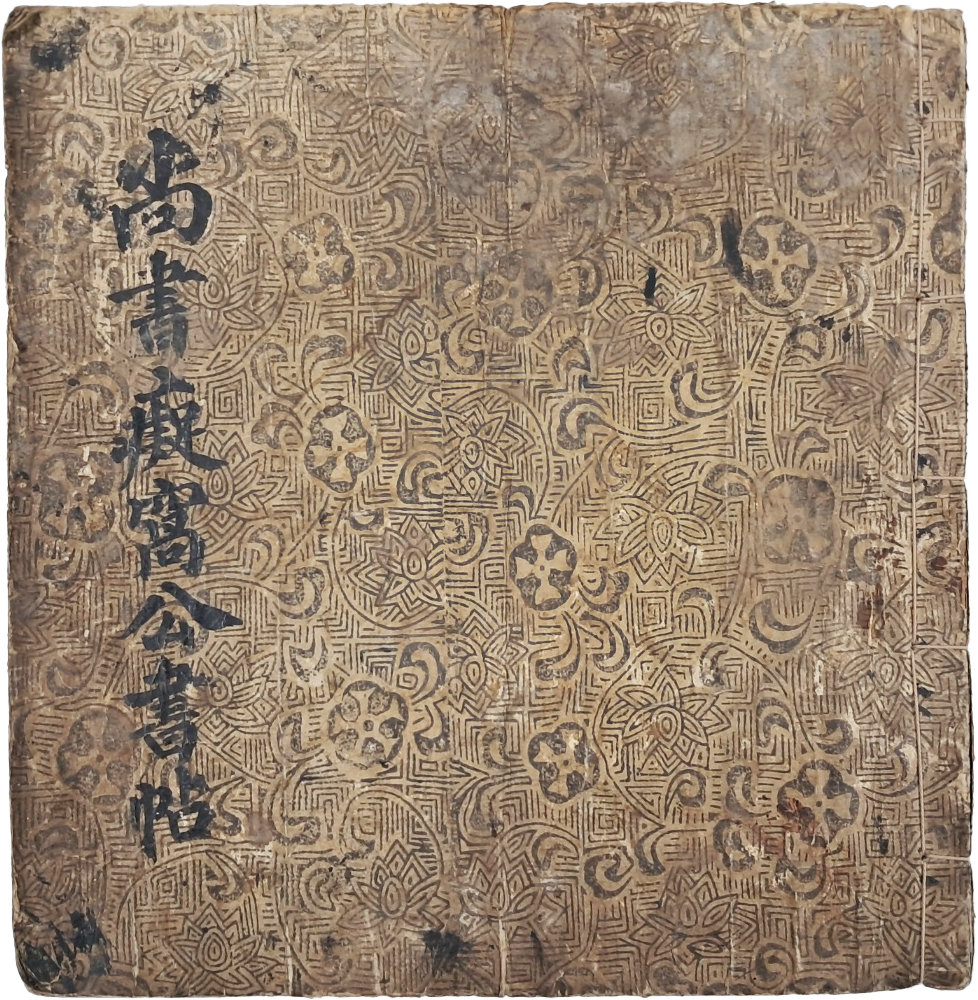 尚書癡窩公書帖